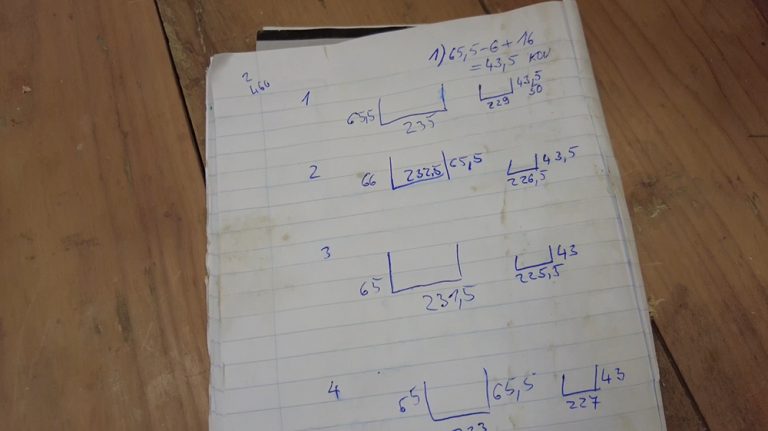 1) 65,5-6+16
= 43,5 KOV
2
460
1
65,5
235
43,5
50
229
2
66
232,5
65,5
43,5
226,5
3
65
231,5
43
225,5
4
65
65,5
43
227